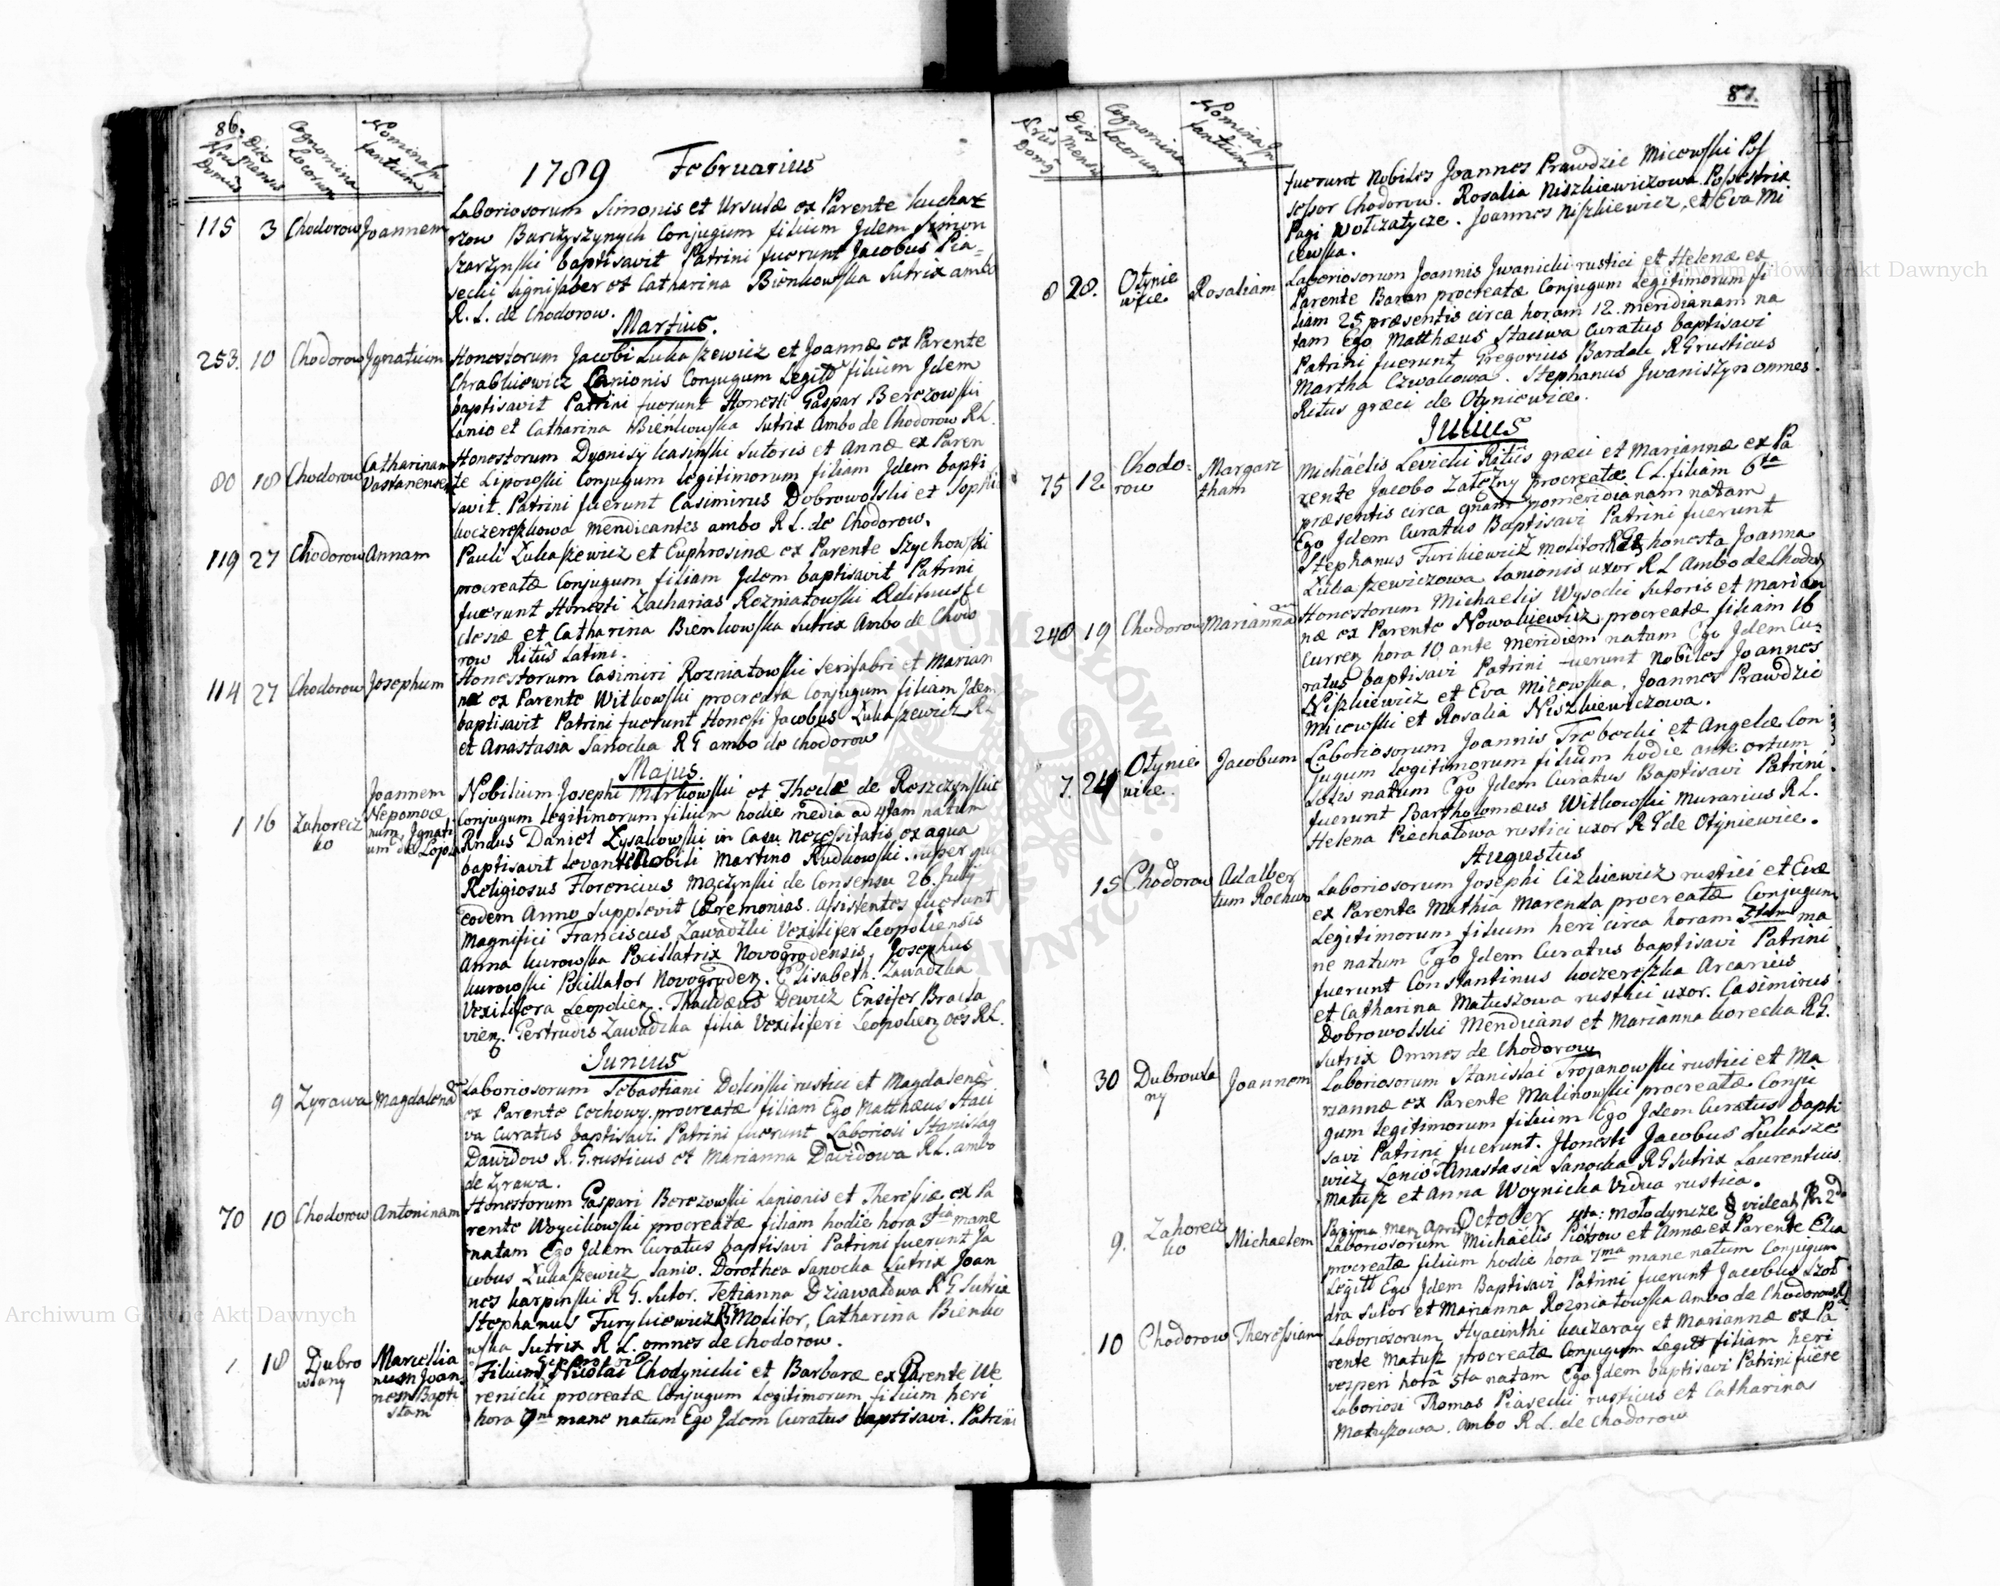 86.
Nrus Domus
Dies mensis
Cognomina Locorum
Nomina Infantium
1789 Februarius
115 3 Chodorow Joannem
Laboriosorum Simonis et Ursulæ ex Parente Kuchar
szow Barczyszynych Conjugum filium Idem Simon
Szarzynski baptisavit Patrini fuerunt Jacobus Pia-
secki lignifaber et Catharina Bienkowska Sutrix ambo
R. L. de Chodorow.
Martius.
253. 10 Chodorow Ignatium
Honestorum Jacobi Lukaszewicz et Joannæ ex Parente
Chrabkiewicz Lanionis Conjugum Legitt filium Idem
baptisavit Patrini fuerunt Honesti Gaspar Berezowski
Lanio et Catharina Bieńkowska Sutrix Ambo de Chodorow RL.
80 18 Chodorow Catharinam
Honestorum Dyonisij Kasinski Sutoris et Annæ ex Paren
te Lipowski Conjugum legitimorum filiam Idem bapti
savit. Patrini fuerunt Casimirus Dobrowolski et Sophia
Koczereszkowa mendicantes ambo R L. de Chodorow.
119 27 Chodorow Annam
Pauli Lukaszewicz et Euphrosinæ ex Parente Szychowski
procreatæ Conjugum filiam Idem baptisavit Patrini
fuerunt Honesti Zacharias Rozniatowski Æditnus Ec
clesiæ et Catharina Bienkowska Sutrix Ambo de Chodo
row Ritûs Latini.
114 27 Chodorow Josephum
Honestorum Casimiri Rozniatowski Serifabri et Marian
næ ex Parente Witkowski procreata Conjugum filium Idem
baptisavit Patrini fuerunt Honesti Jacobus Lukaszewicz RL
et Anastasia Sanocka RG ambo de Chodorow
Majus.
1 16 Zahorecz
ko
Joannem
Nepomoce
num, Ignati
um de Lojola
Nobilium Josephi Mirkowski et Theclæ de Roszczynskie
Conjugum legitimorum filium hodie media ad 4tam natum
Rndus Daniel Lysakowski in Casu necessitatis ex aqua
baptisavit levante Nobili Martino Rudkowski super quē
Religiosus Florencius Męczynski de Consensu 26. Julij
eodem Anno Supplevit Cæremonias. Assistentes fuerunt
Magnifici Franciscus Zawadzki Vexilifer Leopoliensis
Anna Kurowska Pocillatrix Novogrodensis Josephus
Kurowski Pocillator Novogroden. Elisabeth. Zawadzka
Vexilifera Leopolien. Thaddæus Dewicz Ensifer Bracla
vien. Gertrudis Zawadzka filia Vexiliferi Leopolien oēs RL.
Junius
9 Zyrawa Magdalenā
Laboriosorum Sebastiani Dolinski rustici et Magdalenæ
ex Parente Cechowy procreatæ filiam Ego Matthæus Stacı
va Curatus baptisavi. Patrini fuerunt Laboriosi Stanislaq
Dawidow R. G. rusticus et Marianna Davidowa R L. ambo
de Zyrawa.
70 10 Chodorow Antoninam
Honestorum Gaspari Berezowski Lanionis et Theressiæ ex Pa
rente Woycikowski procreatæ filiam hodie hora 3tia mane
natam Ego Idem Curatus baptisavi Patrini fuerunt Ja
cobus Lukaszewicz Lanio. Dorothea Sanocka Sutrix Joan
nes Karpinski R G. Sutor. Tetianna Dziawaldwa R G Sutrix
Stephanus Furykiewicz RG Molitor, Catharina Bienko
wska Sutrix R L. omnes de Chodorow.
18 Dubro
wlany
Marcellia
num Joan
nem Bapti
stam
Filium Nicolai Chodynicki et Barbaræ ex Parente We
renicki procreatæ Conjugum Legitimorum filium heri
hora 9na mane natum Ego Idem Curatus baptisavi. Patrini
87.
Nrus Domûs
Dies Mensis
Cognomina Locorum
Nomina Infantium
fuerunt Nobiles Joannes Prawdzic Micowski Pos
sessor Chodorow. Rosalia Niszkiewiczowa Possestrix
Pagi Wolczatycze. Joannes Niszkiewicz, et Eva Mi
cewska.
8 28. Otynie
wice
Rosaliam
Laboriosorum Joannis Iwanicki rustici et Helenæ ex
Parente Baran procreatæ Conjugum Legitimorum fi
liam 25 præsentis circa horam 12. meridianam na
tam Ego Matthæus Staciwa Curatus baptisavi
Patrini fuerunt Gregorius Bardak RG rusticus
Martha Czwakowa. Stephanus Iwaniszyn omnes
Ritus græci de Otyniewice.
Julius
75 12 Chodo-
row
Margari
tham
Michaëlis Levicki Ritûs græci et Mariannæ ex Pa
rente Jacobo Zatezny procreatæ C L. filiam 6ta
præsentis circa qnam pomeridianam natam
Ego Idem Curatus Baptisavi Patrini fuerunt
Stephanus Furikiewicz molitor RG et honesta Joanna
Lukaszewiczowa Lanionis uxor R L Ambo de Chodor
248 19 Chodorow Mariannam
Honestorum Michaelis Wysocki Sutoris et Marian
næ ex Parente Nowakiewicz procreatæ filiam 16
Curren hora 10 ante meridiem natam Ego Idem Cu-
ratus baptisavi Patrini fuerunt Nobiles Joannes
Niszkiewicz et Eva Micewska. Joannes Prawdzic
Micewski et Rosalia Niszkiewiczowa.
7. 24 Otynie
wice.
Jacobum
Laboriosorum Joannis Trebecki et Angelæ Con
jugum legitimorum filium hodie ante ortum
Solis natum Ego Idem Curatus Baptisavi Patrini
fuerunt Bartholomæus Witkowski Murarius R L.
Helena Piechatowa rustici uxor R G de Otyniewice.
Augustus
15 Chodorow Adalber
tum Rochum
Laboriosorum Josephi Cizkiewicz rustici et Evæ
ex Parente Mathia Marenda procreatæ Conjugum
Legitimorum filium heri circa horam 5tam ma
ne natum Ego Idem Curatus baptisavi Patrini
fuerunt Constantinus Koczereszka Arcarius
et Catharina Matuszowa rustici uxor. Casimirus
Dobrowolski Mendicans et Marianna Korecka RG.
Sutrix Omnes de Chodorow
30 Dubrowla
ny
Joannem
Laboriosorum Stanislai Trojanowski rustici et Ma
riannæ ex Parente Malinowski procreatæ Conju
gum legitimorum filium Ego Idem Curatus bapti
savi Patrini fuerunt. Honesti Jacobus Lukasze
wicz Lanio Anastasia Sanocka R G Sutrix Laurentius
Matusz et Anna Woynicka Vidua rustica.
October
9. Zahorecz
ko
Michaelem
Laboriosorum Michaëlis Piotrow et Annæ ex Parente Elia
procreatæ filium hodie hora 7ma mane natum Conjugum
Legitt Ego Idem Baptisavi Patrini fuerunt Jacobus Szod
dra Sutor et Marianna Rozniatowska Ambo de Chodorow RL
10 Chodorow Theressiam
Laboriosorum Hyacinthi Kaczaray et Mariannæ ex Pa
rente Matusz procreatæ Conjugum Legitt filiam heri
vesperi horâ 5ta natam Ego Idem baptisavi Patrini fuēre
Laboriosi Thomas Piasecki rusticus et Catharina
Matuszowa. Ambo R L. de Chodorow
Archiwum Główne Akt Dawnych
Archiwum Główne Akt Dawnych
ARCHIWUM GŁÓWNE AKT DAWNYCH